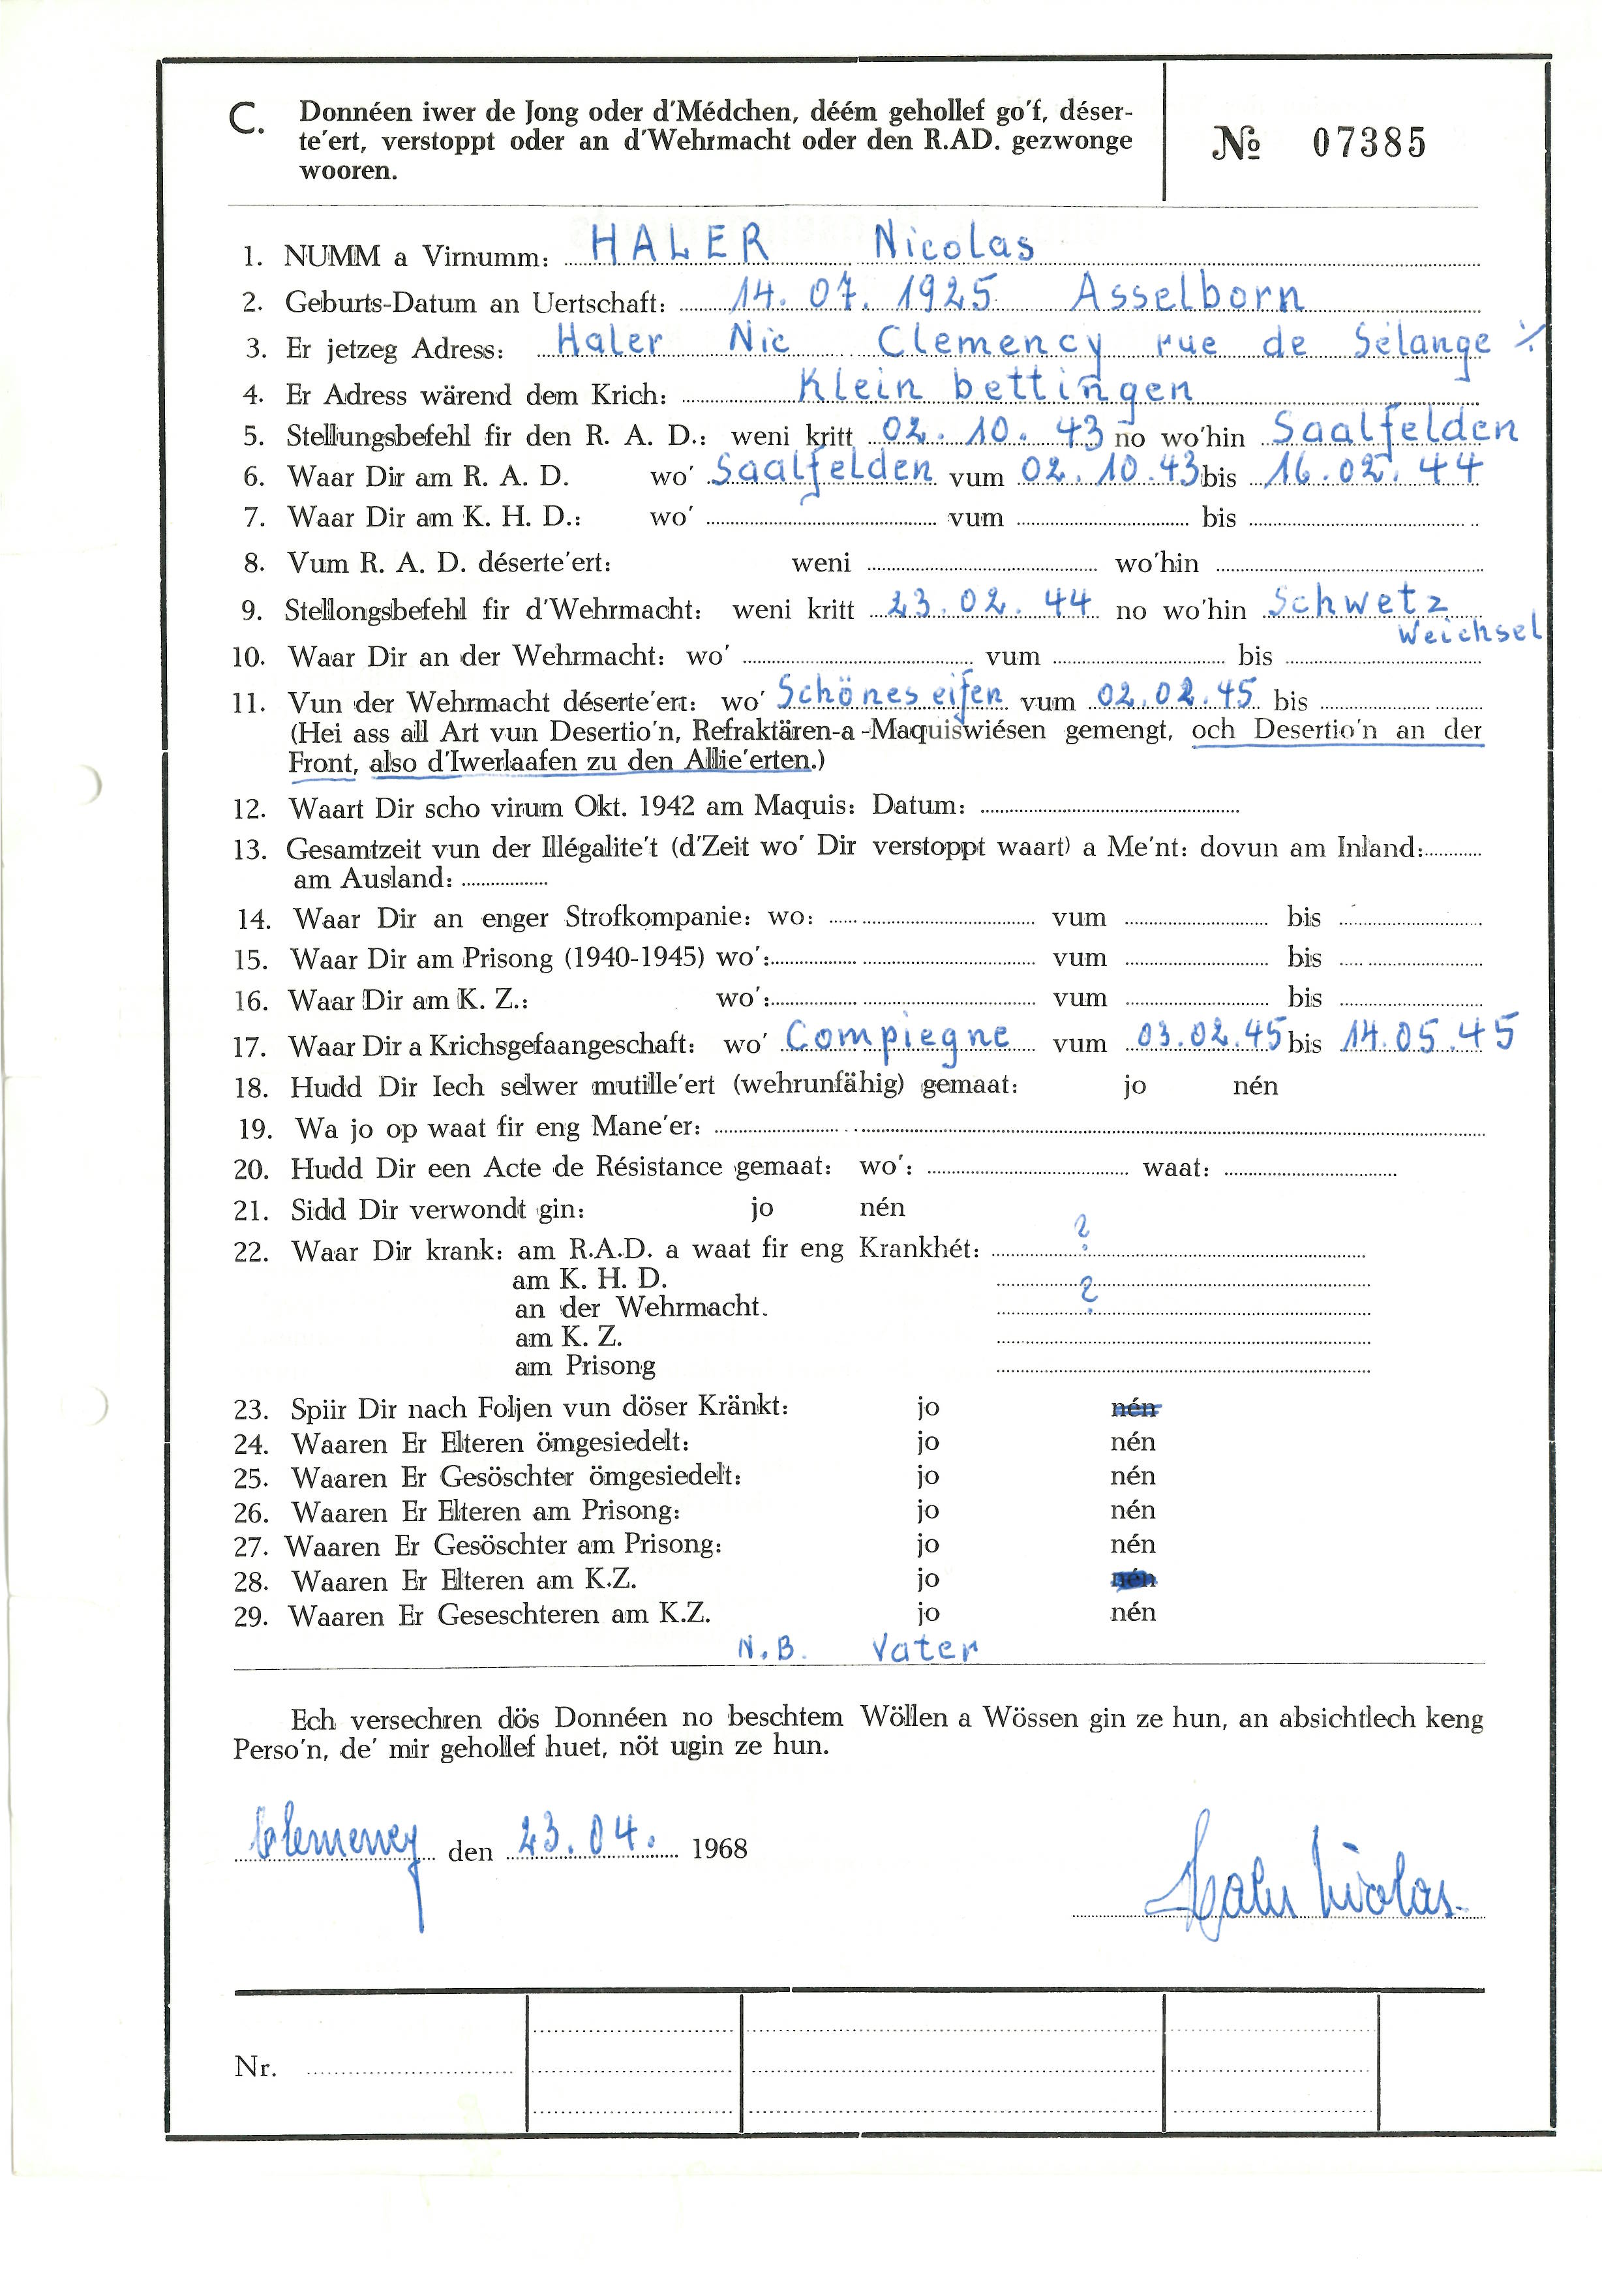 C. Donnéen iwer de Jong oder d'Médchen, déém gehollef go'f, déser-
te'ert, verstoppt oder an d'Wehrmacht oder den R.AD. gezwonge
wooren.
№ 07385
1. NUMM a Virnumm: HALER Nicolas
2. Geburts-Datum an Uertschaft: 14.07.1925 Asselborn
3. Er jetzeg Adress: Haler Nic Clemency rue de Sélange ./.
4. Er Adress wärend dem Krich: Klein bettingen
5. Stellungsbefehl fir den R. A. D.: weni kritt 02.10.43 no wo'hin Saalfelden
6. Waar Dir am R. A. D. wo' Saalfelden vum 02.10.43 bis 16.02.44
7. Waar Dir am K. H. D.: wo' vum bis
8. Vum R. A. D. déserte'ert: weni wo'hin
9. Stellongsbefehl fir d'Wehrmacht: weni kritt 23.02.44 no wo'hin Schwetz
Weichsel
10. Waar Dir an der Wehrmacht: wo' vum bis
11. Vun der Wehrmacht déserte'ert: wo' Schöneseifen vum 02.02.45 bis
(Hei ass all Art vun Desertio'n, Refraktären-a-Maquiswiésen gemengt, och Desertio'n an der
Front, also d'Iwerlaafen zu den Allie'erten.)
12. Waart Dir scho virum Okt. 1942 am Maquis: Datum:
13. Gesamtzeit vun der Illégalite't (d'Zeit wo' Dir verstoppt waart) a Me'nt: dovun am Inland:
am Ausland:
14. Waar Dir an enger Strofkompanie: wo: vum bis
15. Waar Dir am Prisong (1940-1945) wo': vum bis
16. Waar Dir am K. Z.: wo': vum bis
17. Waar Dir a Krichsgefaangeschaft: wo' Compiegne vum 03.02.45 bis 14.05.45
18. Hudd Dir Iech selwer mutille'ert (wehrunfähig) gemaat: jo nén
19. Wa jo op waat fir eng Mane'er:
20. Hudd Dir een Acte de Résistance gemaat: wo': waat:
21. Sidd Dir verwondt gin: jo nén
22. Waar Dir krank: am R.A.D. a waat fir eng Krankhét: ?
am K. H. D.
an der Wehrmacht. ?
am K. Z.
am Prisong
23. Spiir Dir nach Foljen vun döser Kränkt: jo nén
24. Waaren Er Elteren ömgesiedelt: jo nén
25. Waaren Er Gesöschter ömgesiedelt: jo nén
26. Waaren Er Elteren am Prisong: jo nén
27. Waaren Er Gesöschter am Prisong: jo nén
28. Waaren Er Elteren am K.Z. jo nén
29. Waaren Er Geseschteren am K.Z. jo nén
N.B. Vater
Ech versechren dös Donnéen no beschtem Wöllen a Wössen gin ze hun, an absichtlech keng
Perso'n, de' mir gehollef huet, nöt ugin ze hun.
Clemency den 23.04. 1968
Haler Nicolas
Nr.